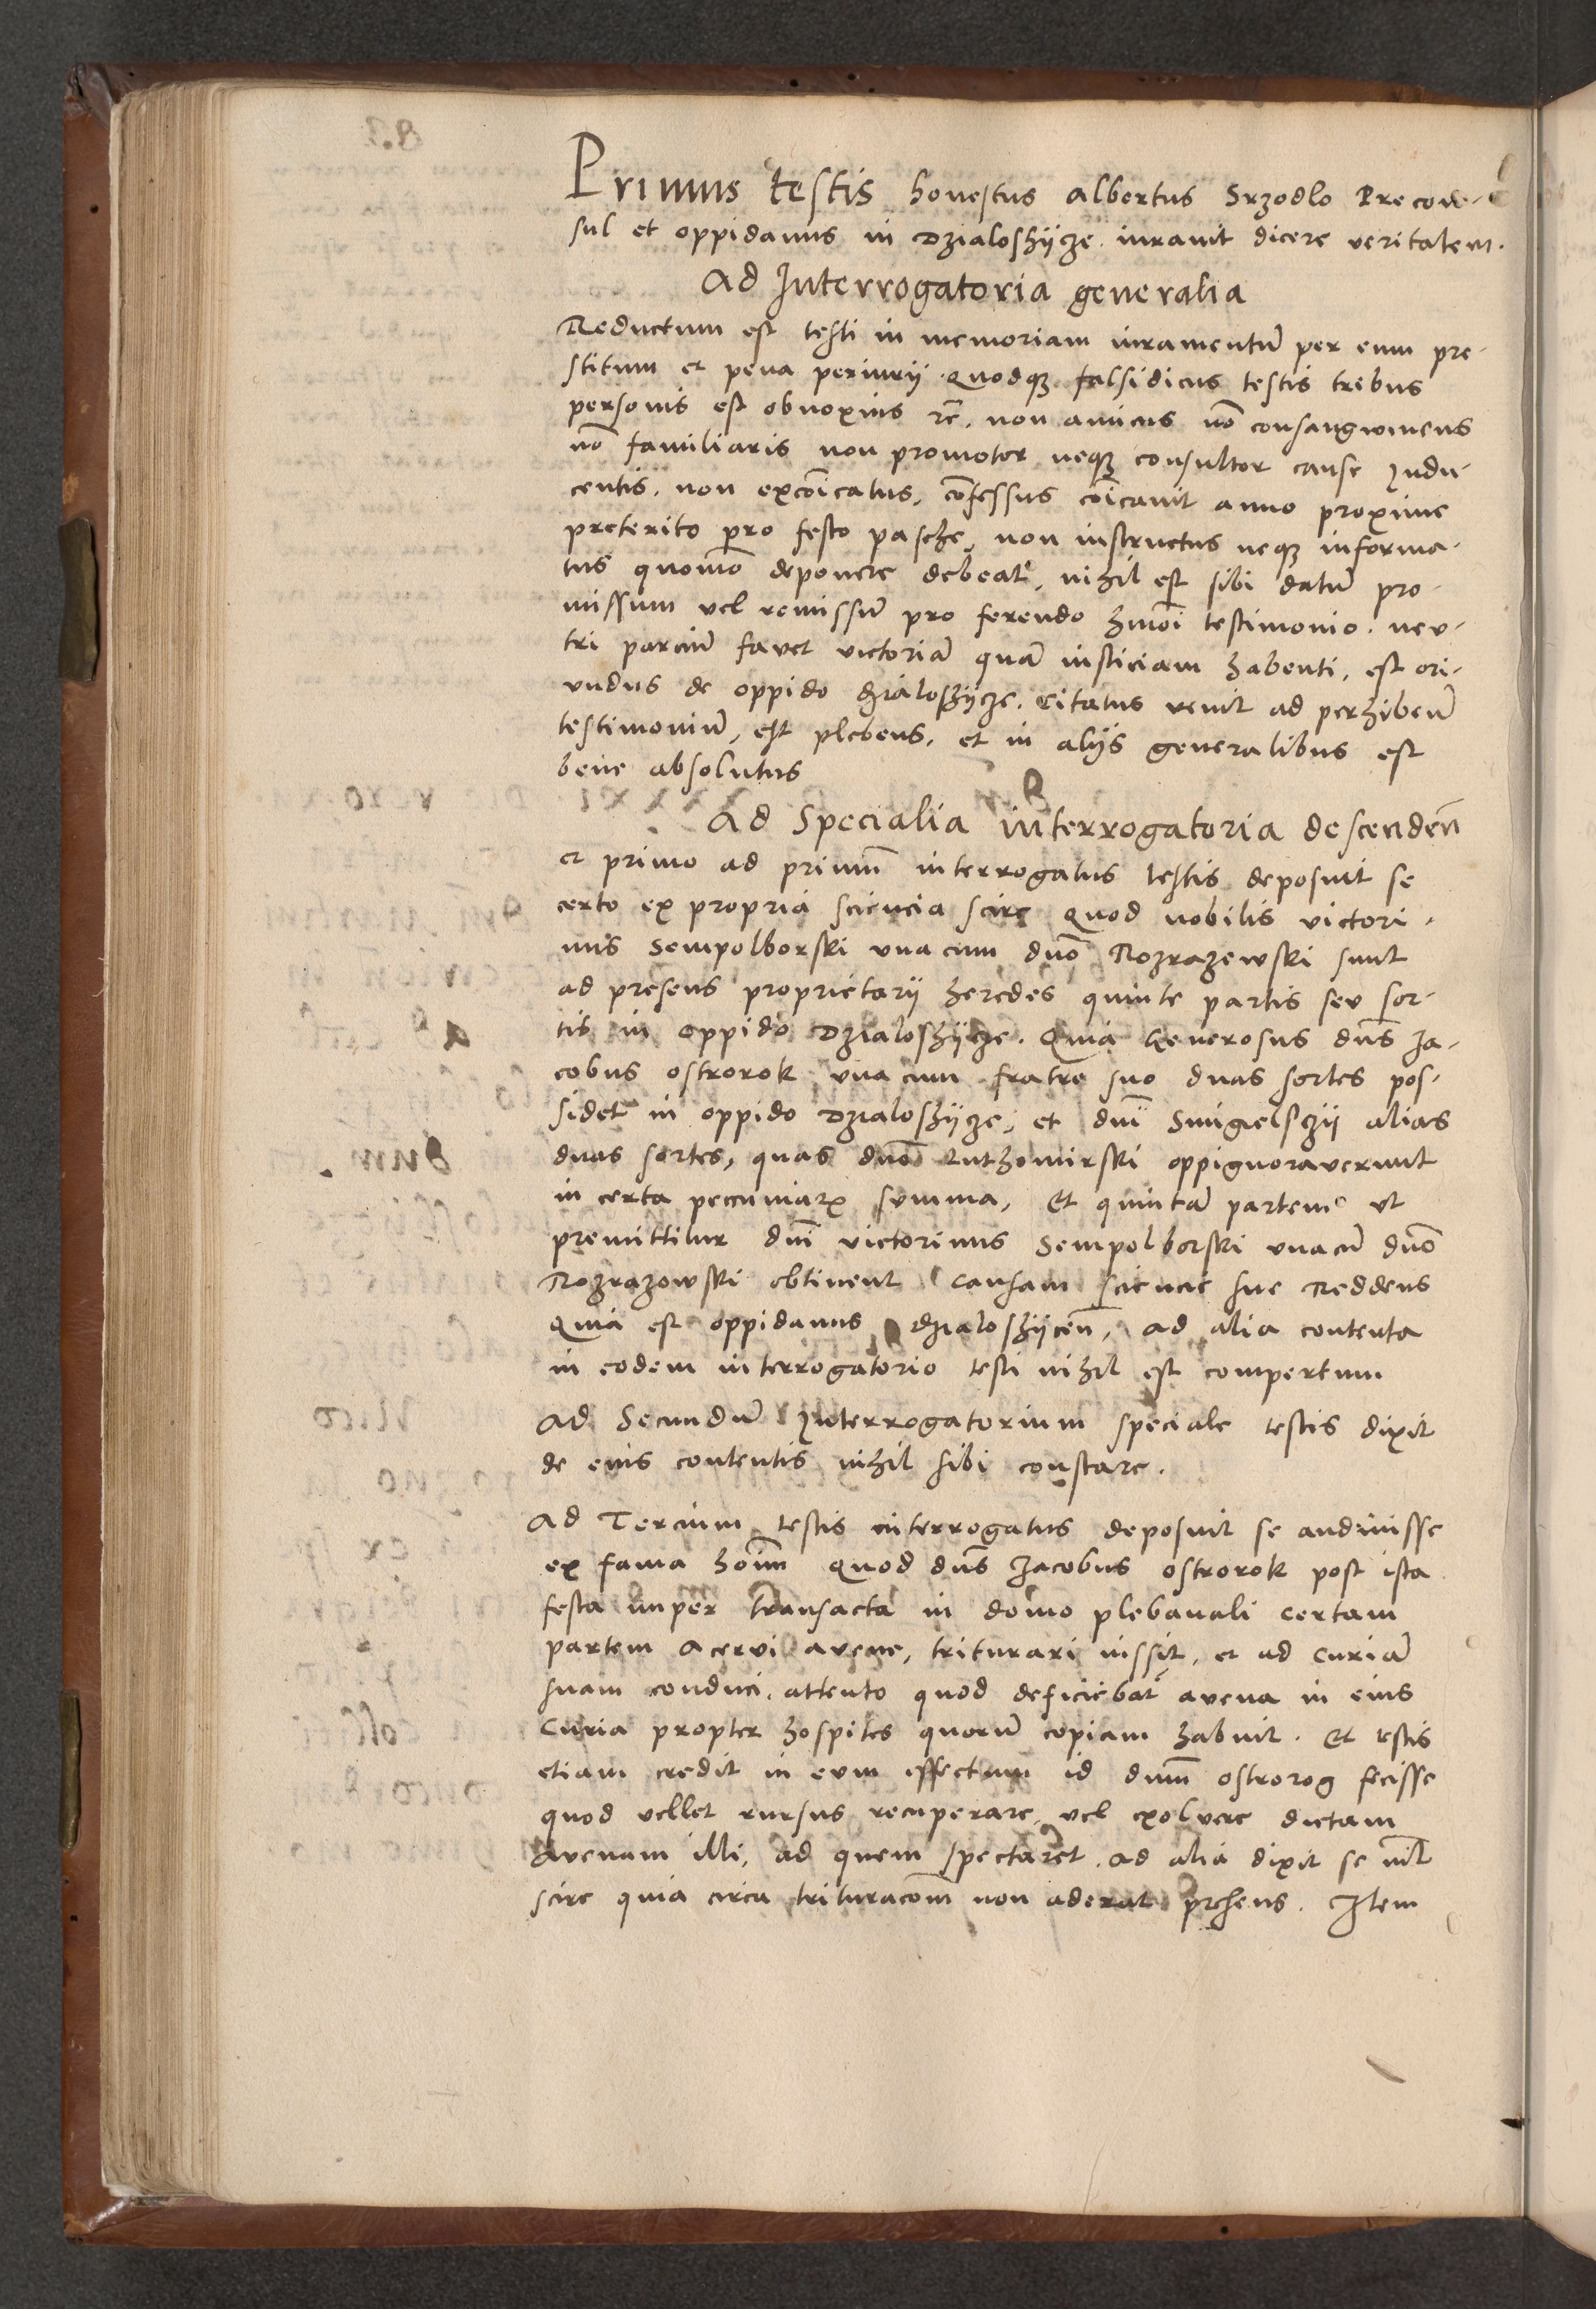 Primus testis honestus albertus Srzodlo Precon-
sul et oppidanus in Dzialoshijcze. iuravit dicere veritatem.
Ad Interrogatoria generalia
Reductum est testi in memoriam iuramentū per eum pre-
stitum et pena periurij. quodqz falsidicus testis tribus
personis est obnoxius rē. non amicus nō consangwineus
nō familiaris non promotor neqz consultor cause Indu-
centis. non excōicatus, cōfessus cōicauit anno proxime
preterito pro festo pasche, non instructus neqz informa-
tus quomō deponere debeat, nihil est sibi datū pro-
missum vel remissū pro ferendo hmōi testimonio. neu-
tri parciū favet victoriā quā iusticiam habenti, est ori-
undus de oppido dzialoshijcze. citatus venit ad perhibeū
testimoniū, est plebeus. et in alijs generalibus est
bene absolutus
Ad Specialia interrogatoria descendēn
et primo ad primū interrogatus testis deposuit se
certo ex propria sciencia scire quod nobilis victori-
nus Sempolborski una cum dnō Rozrazewski sunt
ad presens proprietarij heredes quinte partis seu sor-
tis in oppido Dzialoshijcze. Quia Generosus dns Ja-
cobus ostrorok una cum fratre suo duas sortes pos-
sidet in oppido Dzialoshijcze, et dnī Smigelsczij alias
duas sortes, quas dnō Luthomirski oppignoraverunt
in certa peccuniarx summa, Et quintā partem ut
premittitur dnī victorinus Sempolborski unacū dnō
Rozrazowski obtinent Causam sciencie sue Reddens
Quia est oppidanus dzialoshijcēn, Ad alia contenta
in eodem interrogatorio testi nihil est compertum
Ad Secundū Interrogatorium speciale testis dixit
de eius contentis nihil sibi constare.
Ad Tercium testis interrogatus deposuit se audiuisse
ex fama hoīm quod dns Jacobus ostrorok post ista
festa nuper transacta in domo plebanali certam
partem acervi avene, triturari iussit, et ad curiā
suam conduci, attento quod deficiebat avena in eius
Curia propter hospites quorū copiam habuit. Et testis
etiam credit in eum effectum id dnm ostrorog fecisse
quod vellet rursus recuperare, vel exolvere dictam
avenam illi, ad quem spectaret. Ad alia dixit se nihl
scire quia circa trituracōm non aderat presens. Item